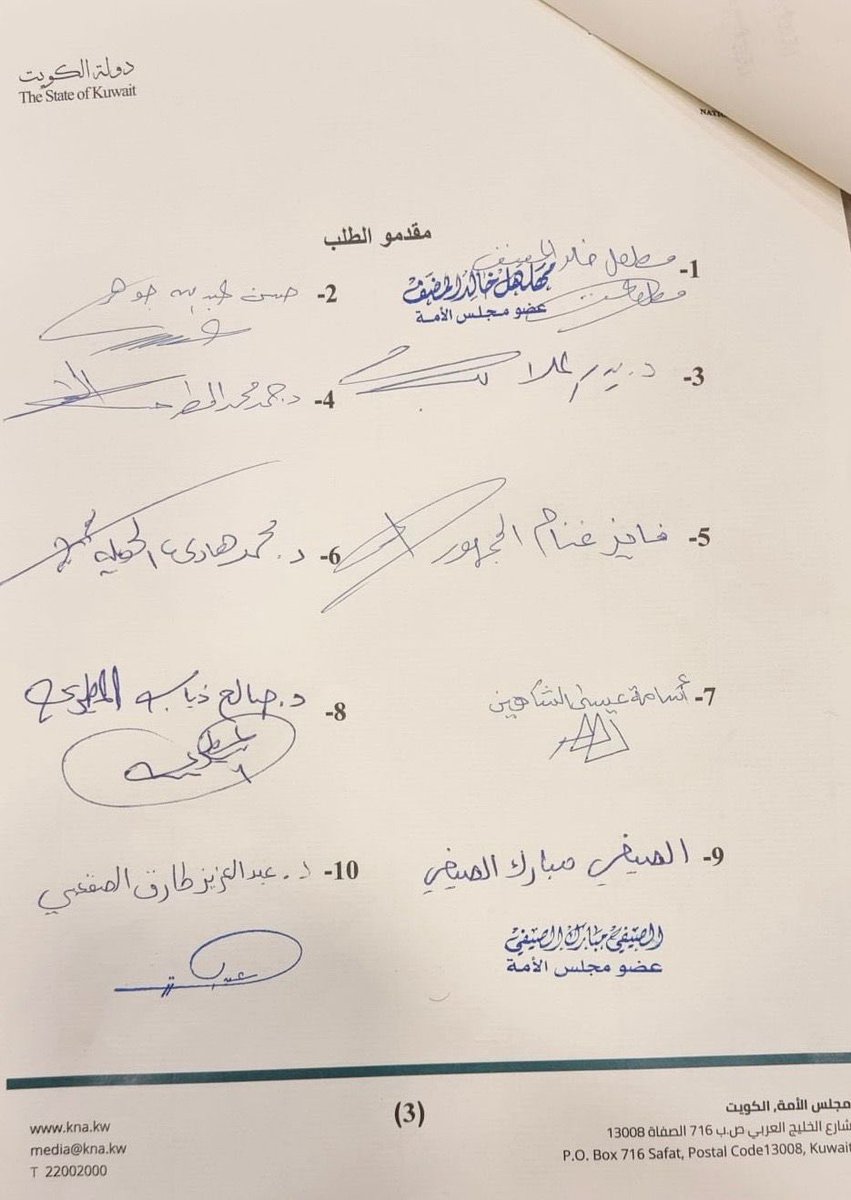 دولة الكويت
The State of Kuwait
مقدمو الطلب
1- مهلهل خالد المضف
مهلهل خالد المضف
عضو مجلس الأمة
2- حسن عبدالله جوهر
3- د. بدر الملا
4- د. حمد محمد المطر
5- فايز غنام الجمهور
6- د. محمد هادي الحويلة
7- أسامة عيسى الشاهين
8- د. صالح ذياب المطيري
9- الصيفي مبارك الصيفي
الصيفي مبارك الصيفي
عضو مجلس الأمة
10- د. عبدالعزيز طارق الصقعبي
(3)
مجلس الأمة, الكويت
شارع الخليج العربي ص.ب 716 الصفاة 13008
P.O. Box 716 Safat, Postal Code13008, Kuwait
www.kna.kw
media@kna.kw
T 22002000